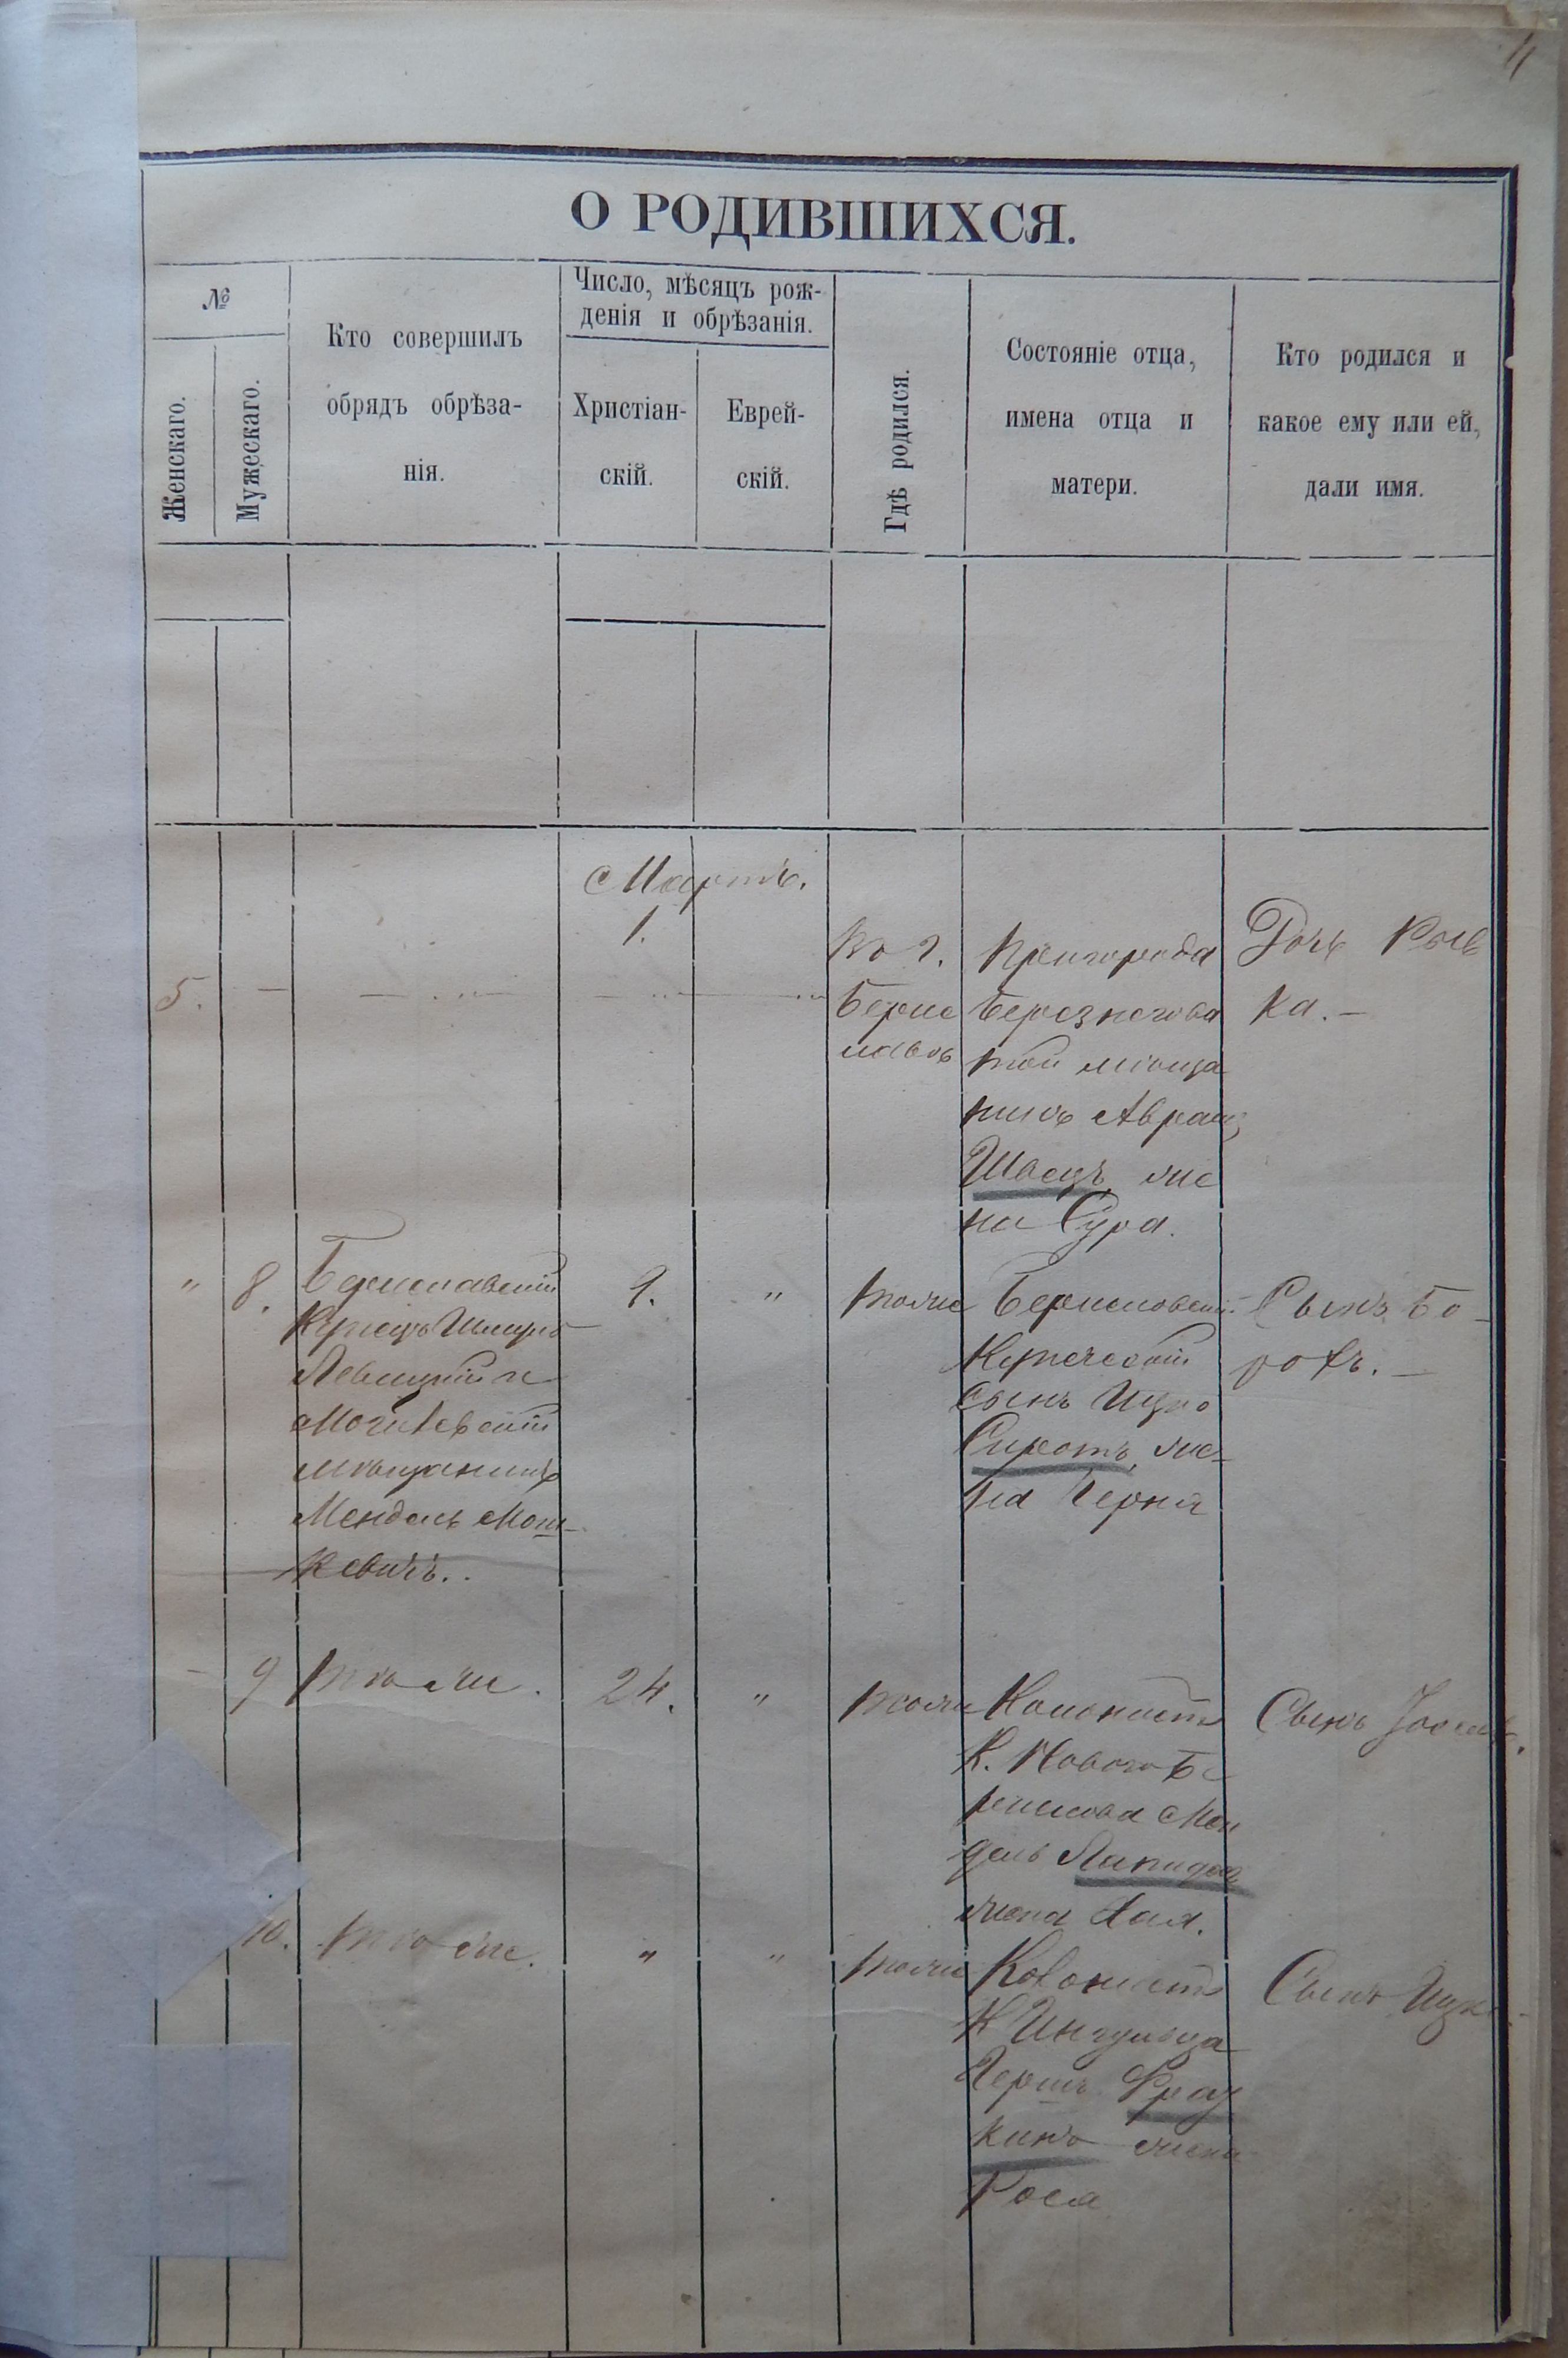 4
О РОДИВШИХСЯ.
№
Женскаго.
Мужескаго.
Кто совершилъ
обрядъ обрѣза-
нія.
Число, мѣсяцъ рож-
денія и обрѣзанія.
Христіан-
скій.
Еврей-
скій.
Гдѣ родился.
Состояніе отца,
имена отца и
матери.
Кто родился и
какое ему или ей,
дали имя.
Мартъ.
5.
1.
Во г.
Берис
лавѣ
Пригорода
Березнегова
той мѣща
нинъ Аврам
Швецъ, же
на Сура.
Дочь Рив
ка. —
" 8.
Бериславскій
Купецъ Шмуль
Левицкій и
Могилевскій
мѣщанинъ
Мендель Мош-
кевичъ.
9.
"
тоже
Бериславскій
Купеческій
сынъ Ицко
Сиротъ, же-
на Черня
Сынъ Бо-
рохъ. —
— 9
тѣ же.
24.
"
тоже
Колонистъ
К. Новаго Бе
рислава Мен
дель
жена Хая.
Сынъ
10.
тѣ же.
"
"
тоже
Колонистъ
К Ингульца
Герш
кинъ жена
Рося
Сынъ Ицко